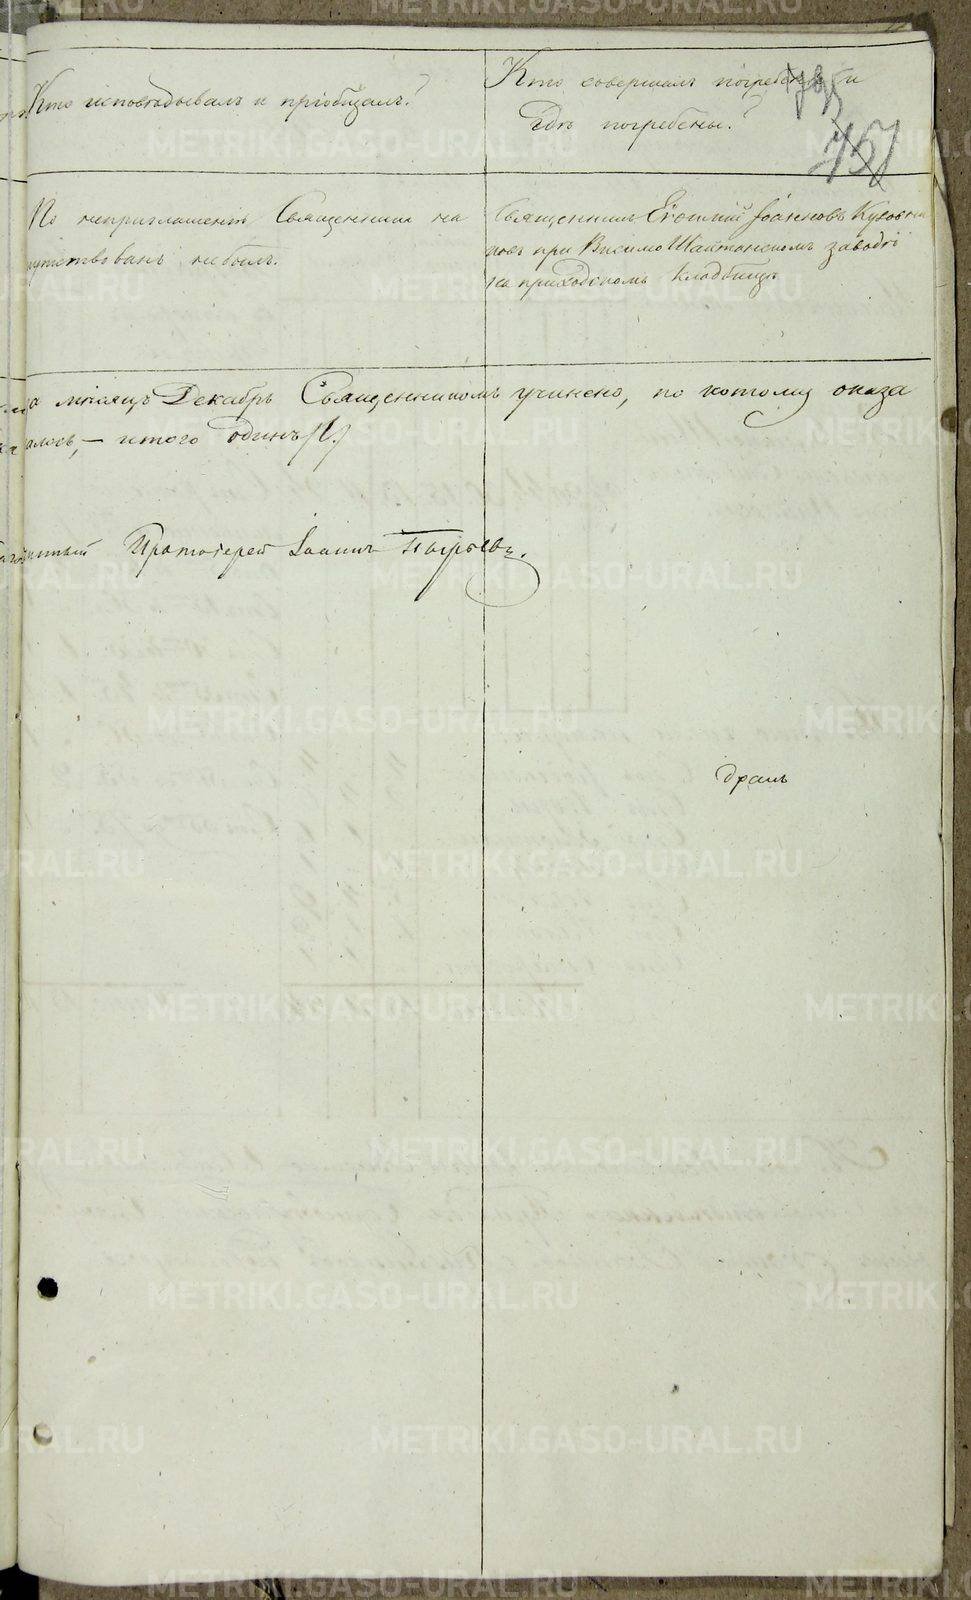 Кто исповѣдывалъ и пріобщалъ?
Кто совершалъ погребеніе и
гдѣ погребены?
757
По неприглашенію Священника на
путствованъ небылъ.
Священникъ Іоанновъ
при Висимо Шайтанскомъ заводѣ
на приходскомъ кладбищѣ
за мѣсяцъ Декабрь Священникомъ учинено, по котому оказа
лось, — итого одинъ /1./
Протоіерей Іоаннъ
METRIKI.GASO-URAL.RU